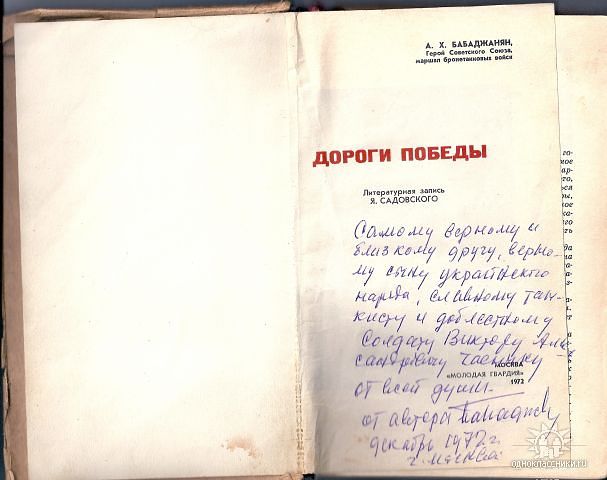 А. Х. БАБАДЖАНЯН,
Герой Советского Союза,
маршал бронетанковых войск
ДОРОГИ ПОБЕДЫ
Литературная запись
Я. САДОВСКОГО
Самому верному и
близкому другу, верно-
му сыну украинского
народа, славному тан-
кисту и доблестному
солдату Виктору Алек
сандровичу
МОСКВА
«МОЛОДАЯ ГВАРДИЯ»
1972
от всей души
от автора
декабрь 1972 г.
г. Москва
одноклассники.ru